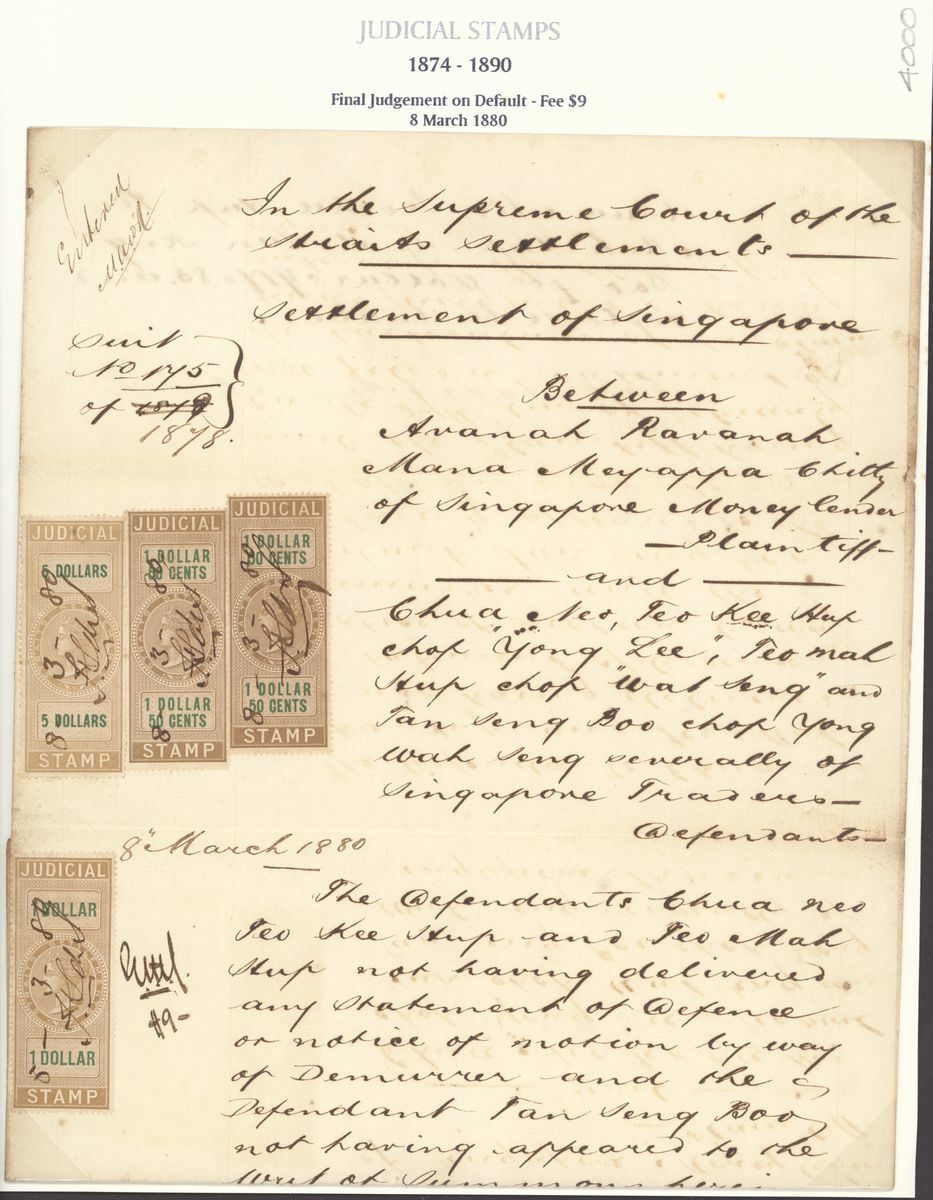 JUDICIAL STAMPS
1874 - 1890
Final Judgement on Default - Fee $9
8 March 1880
4000
Entered
In the Supreme Court of the
Straits Settlements
Settlement of Singapore
Suit
No 175
of 1879
1878.
Between
Avanah Ravanah
Mana Meyappa Chitty
of Singapore Money lender
— Plaintiff —
and
Chua Neo, Teo Kee Hup
chop "Yong Lee", Teo mah
Hup chop "Wat Seng" and
Tan Seng Boo chop Yong
Wah Seng severally of
Singapore Traders —
Defendants —
JUDICIAL
5 DOLLARS
8-3-80
5 DOLLARS
STAMP
JUDICIAL
1 DOLLAR
50 CENTS
8-3-80
1 DOLLAR
50 CENTS
STAMP
JUDICIAL
1 DOLLAR
50 CENTS
8-3-80
1 DOLLAR
50 CENTS
STAMP
8" March 1880
JUDICIAL
1 DOLLAR
8-3-80
1 DOLLAR
STAMP
$9-
The Defendants Chua neo
Teo Kee Hup and Teo Mah
Hup not having delivered
any statement of Defence
or notice of motion by way
of Demurrer and the
Defendant Tan Seng Boo
not having appeared to the
Writ of Summons herein